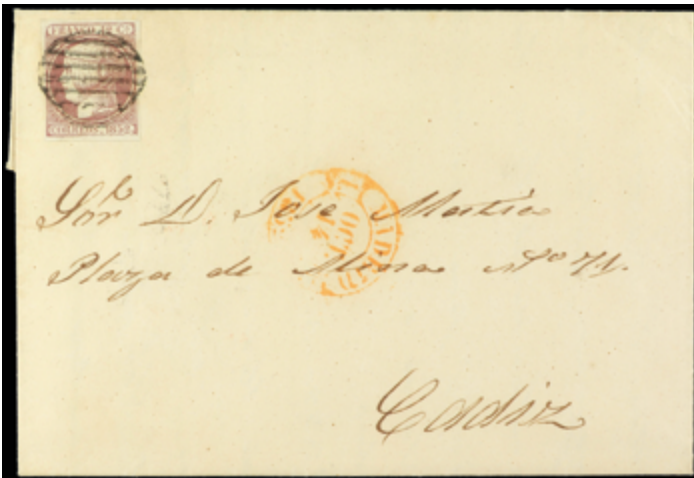 FRANCO 12 Cs
CORREOS. 1852.
MADRID
Sor. D. Jose Matia
Plaza de Mina No 71.
Cadiz